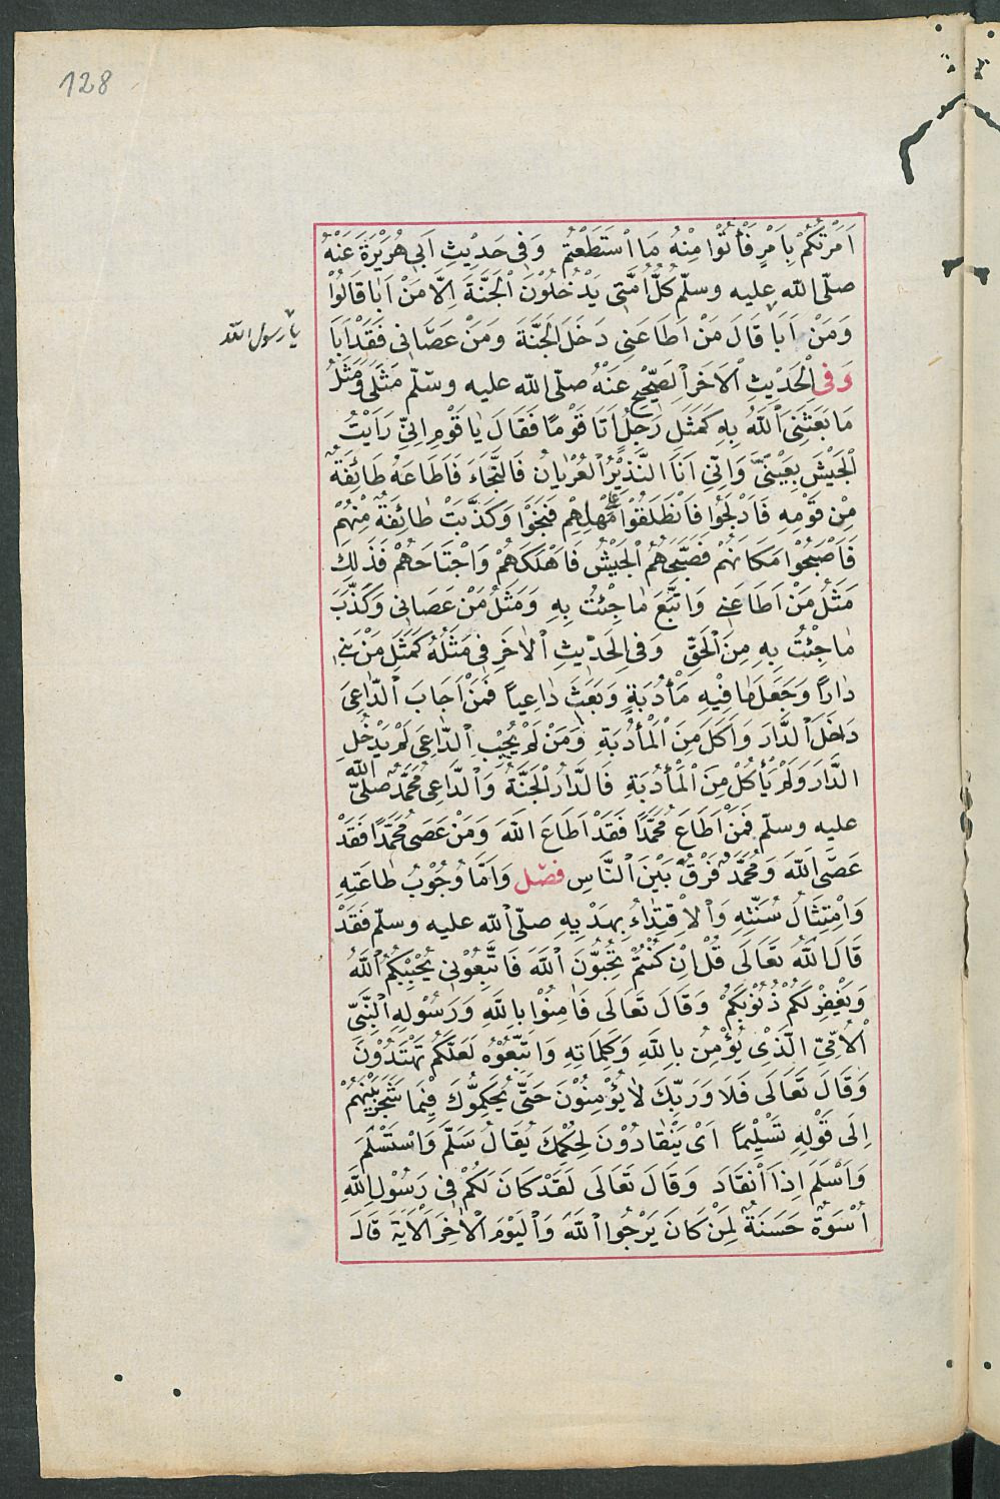 128
اَمَرْتُكُمْ بِاَمْرٍ فَأْتُوا مِنْهُ مَا اسْتَطَعْتُمْ وَفِى حَدِيْثِ اَبِى هُرَيْرَةَ عَنْهُ
صلّى الله عليه وسلّم كُلُّ اُمَّتِى يَدْخُلُوْنَ الْجَنَّةَ اِلَّا مَنْ اَبَا قَالُوْا
يا رسول الله
وَمَنْ اَبَا قَالَ مَنْ اَطَاعَنِى دَخَلَ الْجَنَّةَ وَمَنْ عَصَانِى فَقَدْ اَبَا
وَفِى الْحَدِيْثِ الْاٰخَرِ الصَّحِيْحِ عَنْهُ صلّى الله عليه وسلّم مَثَلِى وَمَثَلُ
مَا بَعَثَنِىَ اللّٰهُ بِهِ كَمَثَلِ رَجُلٍ اَتَا قَوْمًا فَقَالَ يَا قَوْمِ اِنِّى رَاَيْتُ
الْجَيْشَ بِعَيْنَىَّ وَاِنِّى اَنَا النَّذِيْرُ الْعُرْيَانُ فَالنَّجَاءَ فَاَطَاعَهُ طَائِفَةٌ
مِنْ قَوْمِهِ فَاَدْلَجُوا فَانْطَلَقُوْا عَلٰى مَهْلِهِمْ فَنَجَوْا وَكَذَّبَتْ طَائِفَةٌ مِنْهُمْ
فَاَصْبَحُوْا مَكَانَهُمْ فَصَبَّحَهُمُ الْجَيْشُ فَاَهْلَكَهُمْ وَاجْتَاحَهُمْ فَذٰلِكَ
مَثَلُ مَنْ اَطَاعَنِى وَاتَّبَعَ مَا جِئْتُ بِهِ وَمَثَلُ مَنْ عَصَانِى وَكَذَّبَ
مَا جِئْتُ بِهِ مِنَ الْحَقِّ وَفِى الْحَدِيْثِ الْاٰخَرِ فِى مَثَلُهُ كَمَثَلِ مَنْ بَنٰى
دَارًا وَجَعَلَ فِيْهِ مَأْدُبَةً وَبَعَثَ دَاعِيًا فَمَنْ اَجَابَ الدَّاعِىَ
دَاخَلَ الدَّارَ وَاَكَلَ مِنَ الْمَأْدُبَةِ وَمَنْ لَمْ يُجِبِ الدَّاعِىَ لَمْ يَدْخُلِ
الدَّارَ وَلَمْ يَأْكُلْ مِنَ الْمَأْدُبَةِ فَالدَّارُ الْجَنَّةُ وَالدَّاعِى مُحَمَّدٌ صلّى الله
عليه وسلّم فَمَنْ اَطَاعَ مُحَمَّدًا فَقَدْ اَطَاعَ اللّٰهَ وَمَنْ عَصَى مُحَمَّدًا فَقَدْ
عَصَى اللّٰهَ وَمُحَمَّدٌ فَرْقٌ بَيْنَ النَّاسِ فصل وَاَمَّا وُجُوْبُ طَاعَتِهِ
وَامْتِثَالُ سُنَّتِهِ وَالْاِقْتِدَاءُ بِهَدْيِهِ صلّى الله عليه وسلّم فَقَدْ
قَالَ اللّٰهُ تَعَالَى قُلْ اِنْ كُنْتُمْ تُحِبُّوْنَ اللّٰهَ فَاتَّبِعُوْنِى يُحْبِبْكُمُ اللّٰهُ
وَيَغْفِرْ لَكُمْ ذُنُوْبَكُمْ وَقَالَ تَعَالَى فَاٰمِنُوْا بِاللّٰهِ وَرَسُوْلِهِ النَّبِىِّ
الْاُمِّىِّ الَّذِى يُؤْمِنُ بِاللّٰهِ وَكَلِمَاتِهِ وَاتَّبِعُوْهُ لَعَلَّكُمْ تَهْتَدُوْنَ
وَقَالَ تَعَالَى فَلَا وَرَبِّكَ لَا يُؤْمِنُوْنَ حَتّٰى يُحَكِّمُوْكَ فِيْمَا شَجَرَ بَيْنَهُمْ
اِلَى قَوْلِهِ تَسْلِيْمًا اَىْ يَنْقَادُوْنَ لِحُكْمِكَ يُقَالُ سَلَّمَ وَاسْتَسْلَمَ
وَاَسْلَمَ اِذَا انْقَادَ وَقَالَ تَعَالَى لَقَدْ كَانَ لَكُمْ فِى رَسُوْلِ اللّٰهِ
اُسْوَةٌ حَسَنَةٌ لِمَنْ كَانَ يَرْجُوا اللّٰهَ وَالْيَوْمَ الْاٰخِرَ الْاٰيَةَ قَالَ